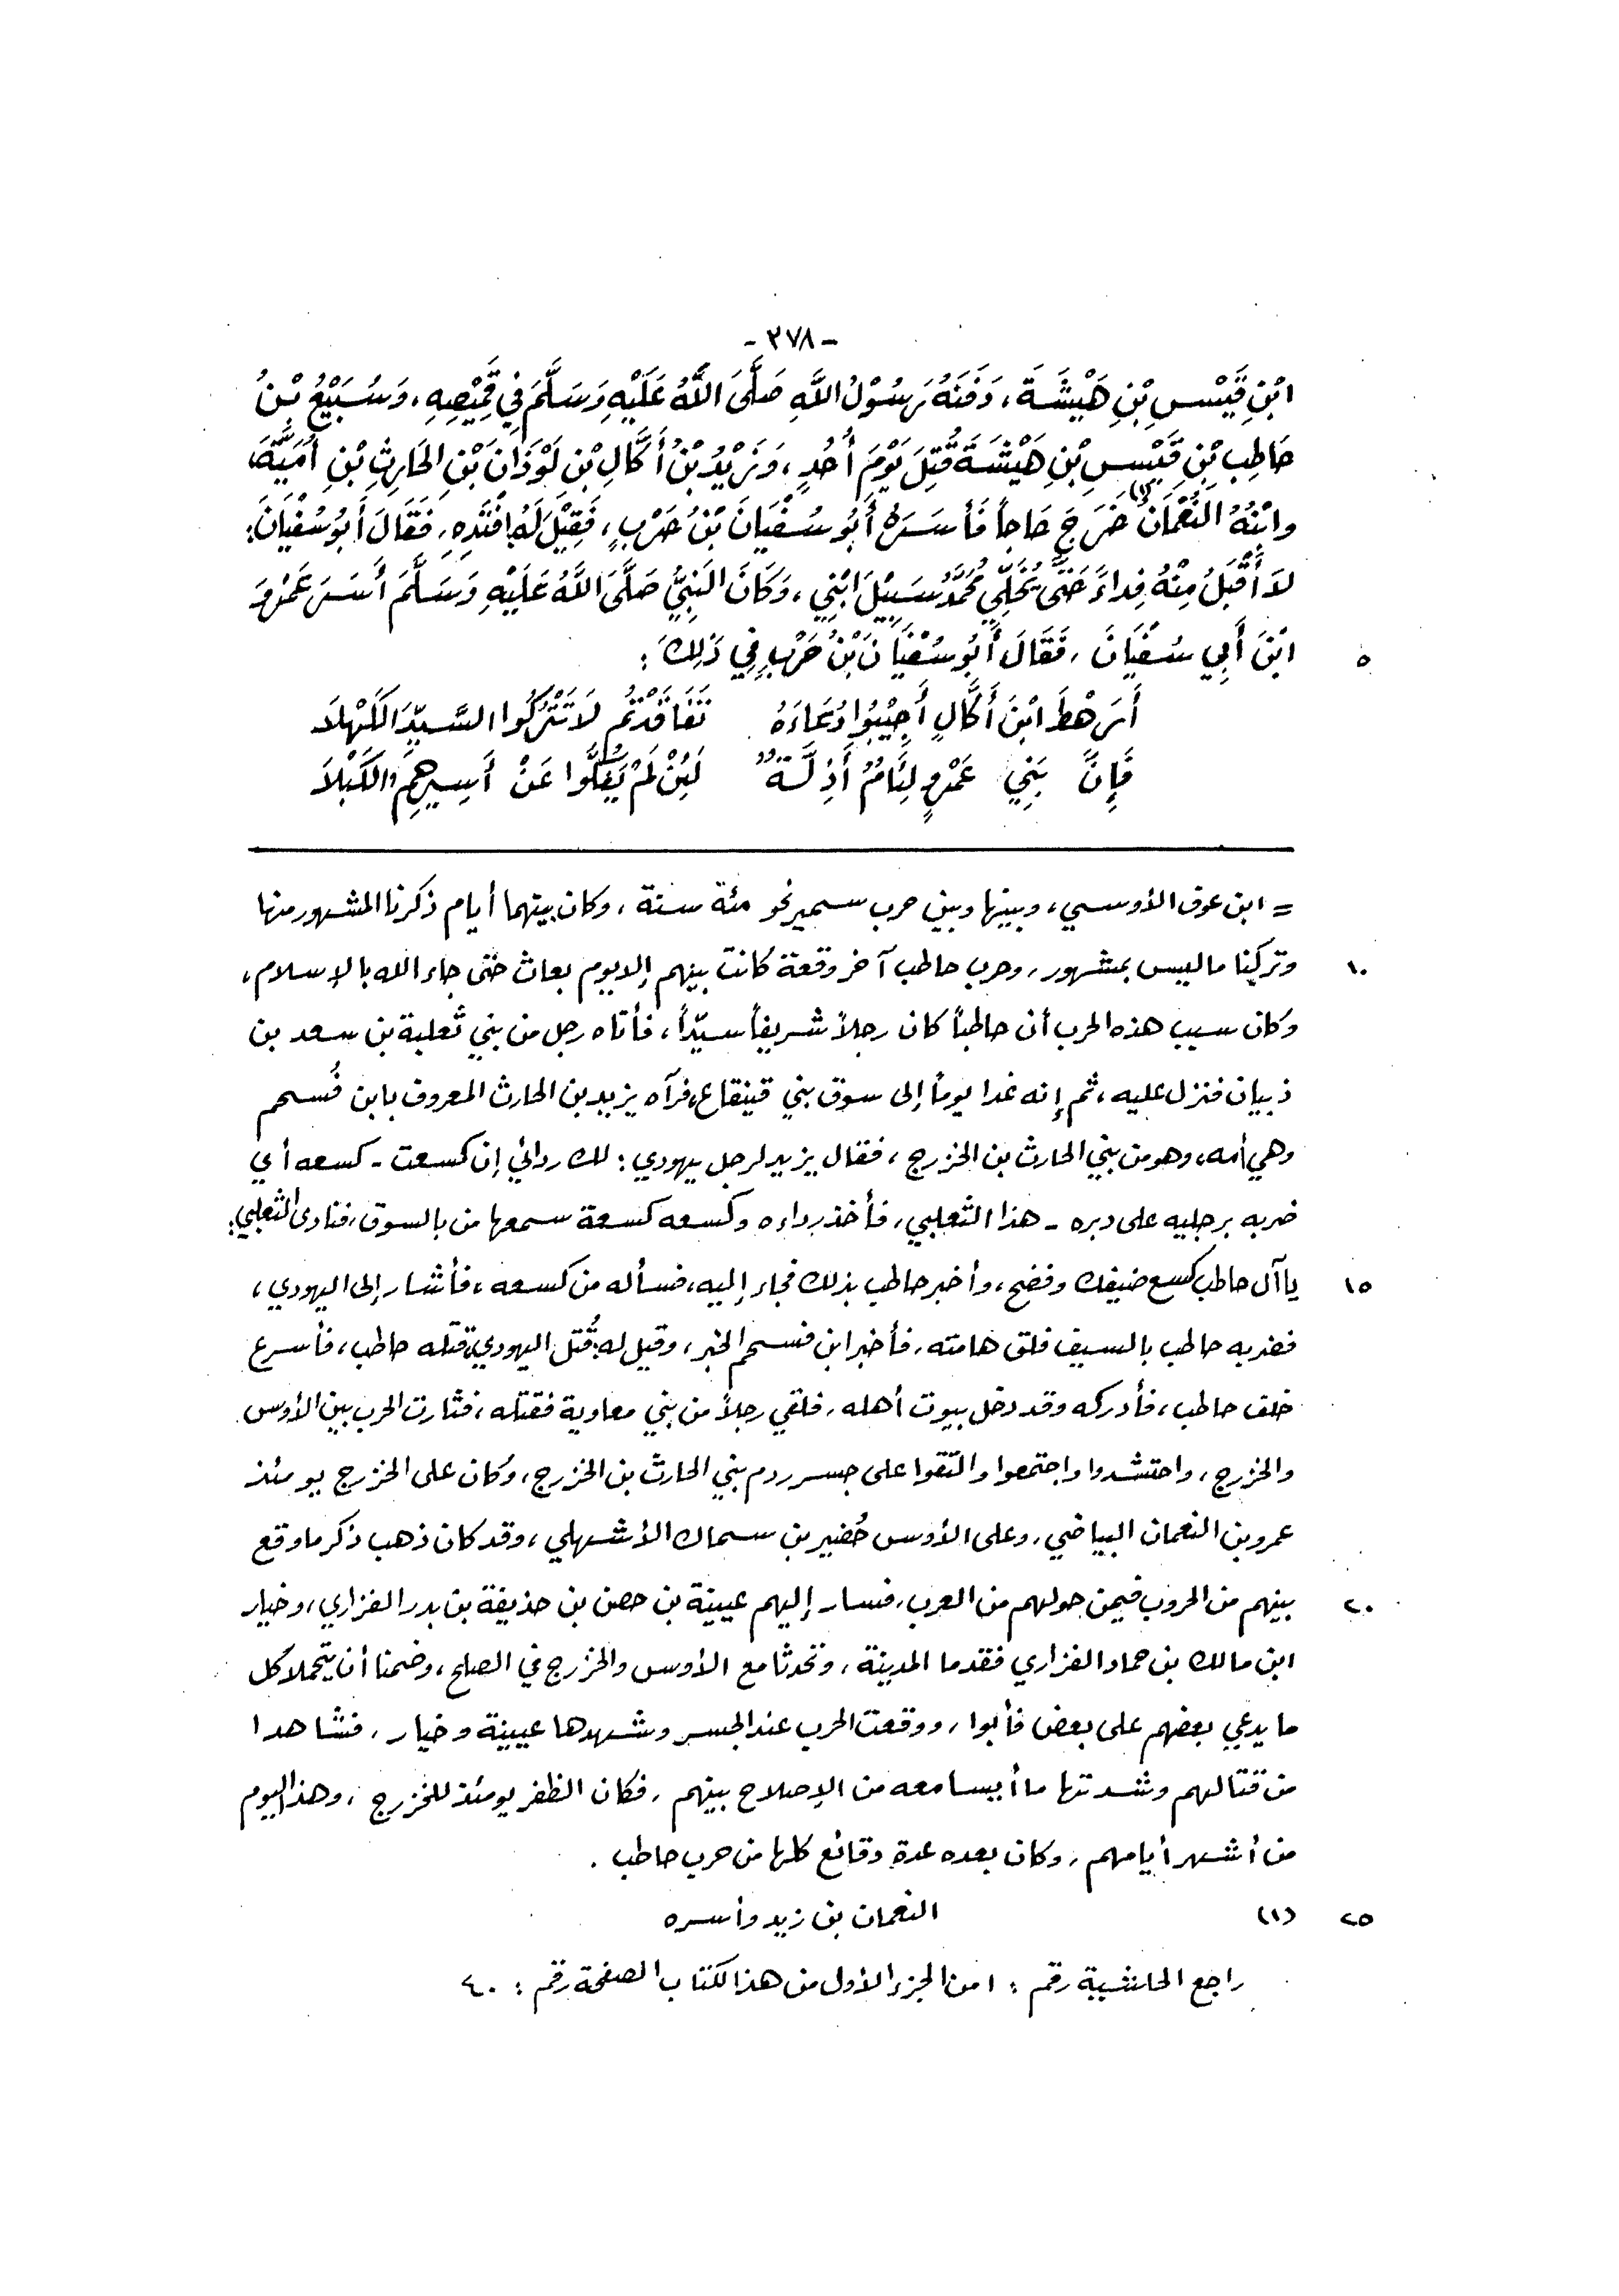 - ٢٧٨ -
ابْنِ قَيْسِ بْنِ هَيْشَةَ، دَفَنَهُ رَسُوْلُ اللَّهِ صَلَّى اللَّهُ عَلَيْهِ وَسَلَّمَ فِي قَمِيْصِهِ، وَسُبَيْعُ بْنُ
حَاطِبِ بْنِ قَيْسِ بْنِ هَيْشَةَ قُتِلَ يَوْمَ أُحُدٍ، وَزَيْدُ بْنُ أَكَّالِ بْنِ لَوْذَانَ بْنِ الحَارِثِ بْنِ أُمَيَّةَ،
وابْنُهُ النُّعْمَانُ (١) خَرَجَ حَاجاً فَأَسَرَهُ أَبُو سُفْيَانَ بْنُ حَرْبٍ، فَقِيْلَ لَهُ افْتَدِهِ، فَقَالَ أَبُو سُفْيَانَ:
لاَ أَقْبَلُ مِنْهُ فِداءً حَتَّى يُخَلِّي مُحَمَّدٌ سَبِيْلَ ابْنِي، وَكَانَ النَبِيُّ صَلَّى اللَّهُ عَلَيْهِ وَسَلَّمَ أَسَرَ عَمْرَو
٥ ابْنَ أَبِي سُفْيَانَ، فَقَالَ أَبُو سُفْيَانَ بْنُ حَرْبٍ فِي ذَلِكَ:
أَرَهْطَ ابْنِ أَكَّالٍ أَجِيْبُوا دُعَاءَهُ تَفَاقَدْتُمْ لاَ تَتْرُكُوا السَّيِّدَ الكَهْلاَ
فَإِنَّ بَنِي عَمْرٍو لِئَامٌ أَذِلَّةٌ لَئِنْ لَمْ يَفُكُّوا عَنْ أَسِيرِهِمُ الكَبْلاَ
= ابن عوف الأوسي، وبينها وبين حرب سمير نحو مئة سنة، وكان بينهما أيام ذكرنا المشهور منها
١٠ وتركنا ما ليس بمشهور، وحرب حاطب آخر وقعة كانت بينهم إلا يوم بعاث حتى جاء الله بالإسلام،
وكان سبب هذه الحرب أن حاطباً كان رجلاً شريفاً سيّداً، فأتاه رجل من بني ثعلبة بن سعد بن
ذبيان فنزل عليه، ثم إنه غدا يوماً إلى سوق بني قينقاع، فرآه يزيد بن الحارث المعروف بابن فُسحم
وهي أمه، وهو من بني الحارث بن الخزرج، فقال يزيد لرجل يهودي: لك ردائي إن كسعت - كسعه أي
ضربه برجليه على دبره - هذا الثعلبي، فأخذ رداءه وكسعه كسعة سمعها من بالسوق، فنادى الثعلبي:
١٥ يا آل حاطب كسع ضيفك وفضح، وأخبر حاطب بذلك فجاء إليه، فسأله من كسعه، فأشار إلى اليهودي،
فضربه حاطب بالسيف فلق هامته، فأخبر ابن فسحم الخبر، وقيل له: قُتل اليهودي، قتله حاطب، فأسرع
خلف حاطب، فأدركه وقد دخل بيوت أهله، فلقي رجلاً من بني معاوية فقتله، فثارت الحرب بين الأوس
والخزرج، واحتشدوا واجتمعوا والتقوا على جسر ردم بني الحارث بن الخزرج، وكان على الخزرج يومئذ
عمرو بن النعمان البياضي، وعلى الأوس حُضير بن سماك الأشهلي، وقد كان ذهب ذكر ما وقع
٢٠ بينهم من الحروب فيمن حولهم من العرب، فسار إليهم عيينة بن حصن بن حذيفة بن بدر الفزاري، وخيار
ابن مالك بن حماد الفزاري فقدما المدينة، وتحدثا مع الأوس والخزرج في الصلح، وضمنا أن يتحملا كل
ما يدعي بعضهم على بعض فأبوا، ووقعت الحرب عند الجسر وشهدها عيينة وخيار، فشاهدا
من قتالهم وشدتها ما أيسا معه من الإصلاح بينهم، فكان الظفر يومئذ للخزرج، وهذا اليوم
من أشهر أيامهم، وكان بعده عدة وقائع كلها من حرب حاطب.
٢٥ (١) النعمان بن زيد وأسره
راجع الحاشية رقم: ١ من الجزء الأول من هذا الكتاب الصفحة رقم: ٤٠